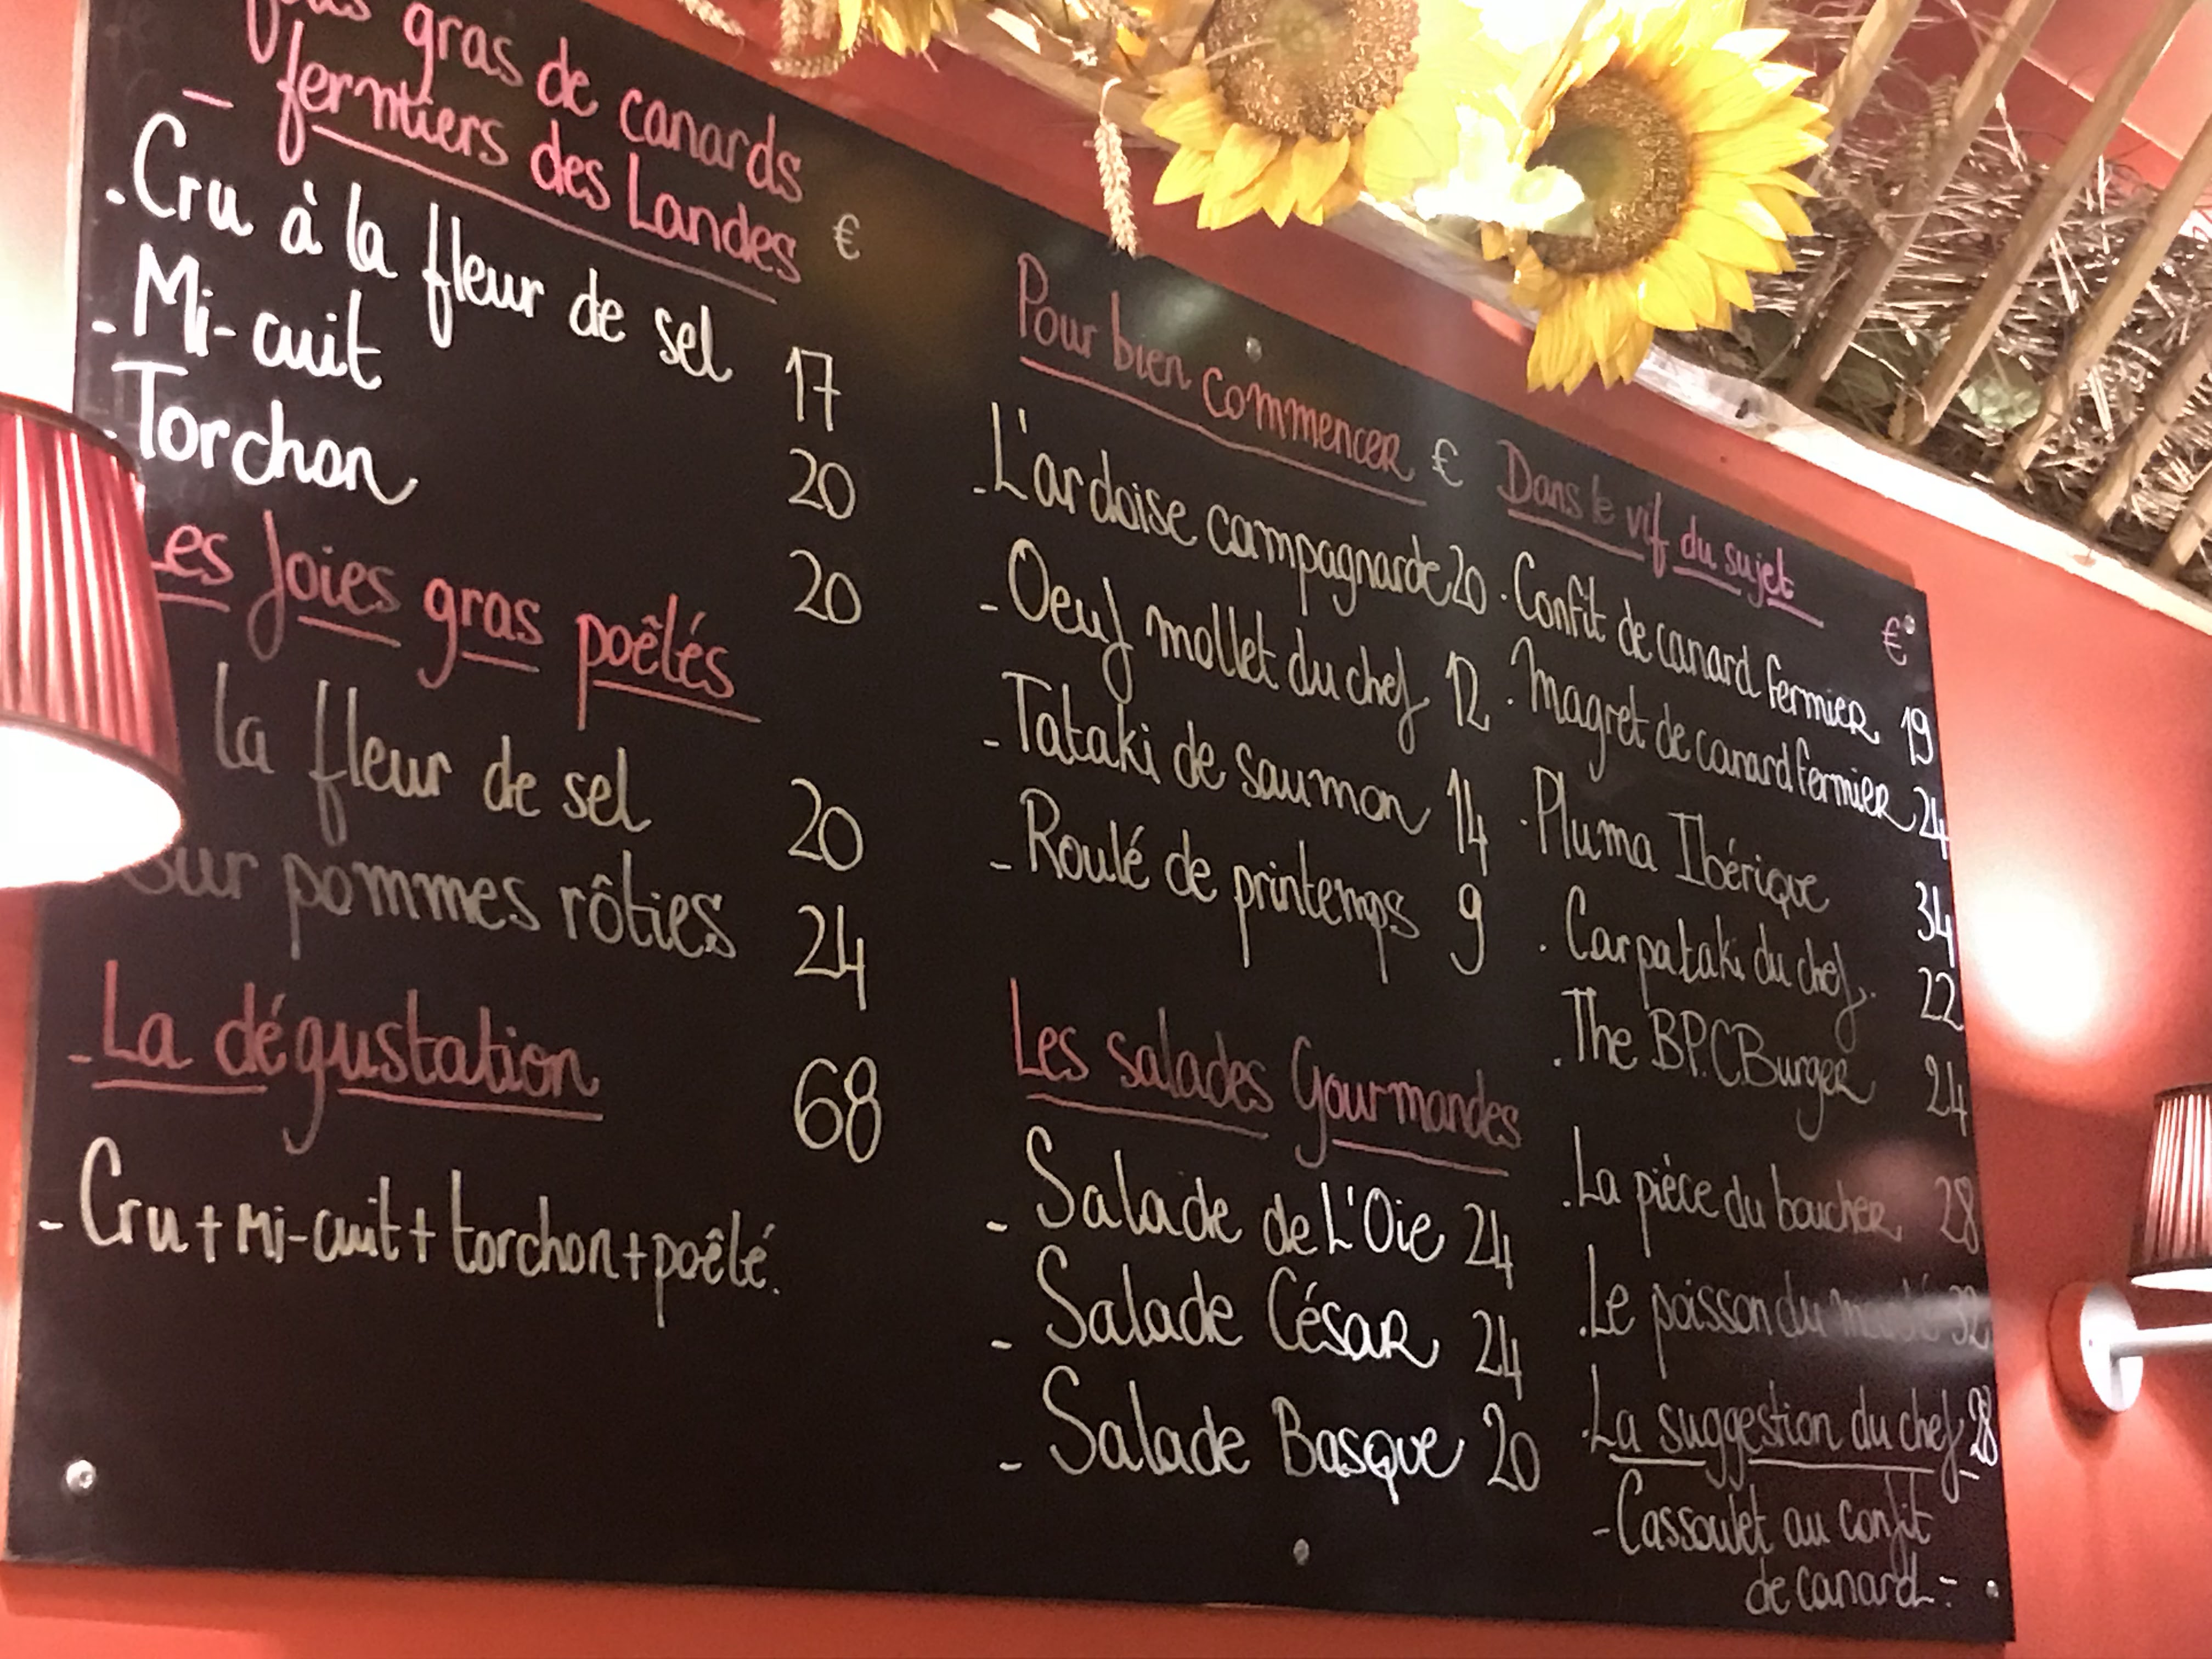 gras de canards
- fermiers des Landes €
- Cru à la fleur de sel 17
- Mi-cuit 20
- Torchon 20
Les foies gras poêlés
la fleur de sel 20
Sur pommes rôties 24
- La dégustation 68
- Cru + Mi-cuit + torchon + poêlé.
Pour bien commencer €
- L'ardoise campagnarde 20
- Oeuf mollet du chef 12
- Tataki de saumon 14
- Roulé de printemps 9
Les salades Gourmandes
- Salade de L'Oie 24
- Salade César 24
- Salade Basque 20
Dans le vif du sujet €
. Confit de canard fermier 19
. Magret de canard fermier 24
. Pluma Ibérique 34
. Carpataki du chef. 22
. The B.P.C Burger 24
. La pièce du boucher 28
. Le poisson du marché 32
. La suggestion du chef 28
- Cassoulet au confit
de canard -